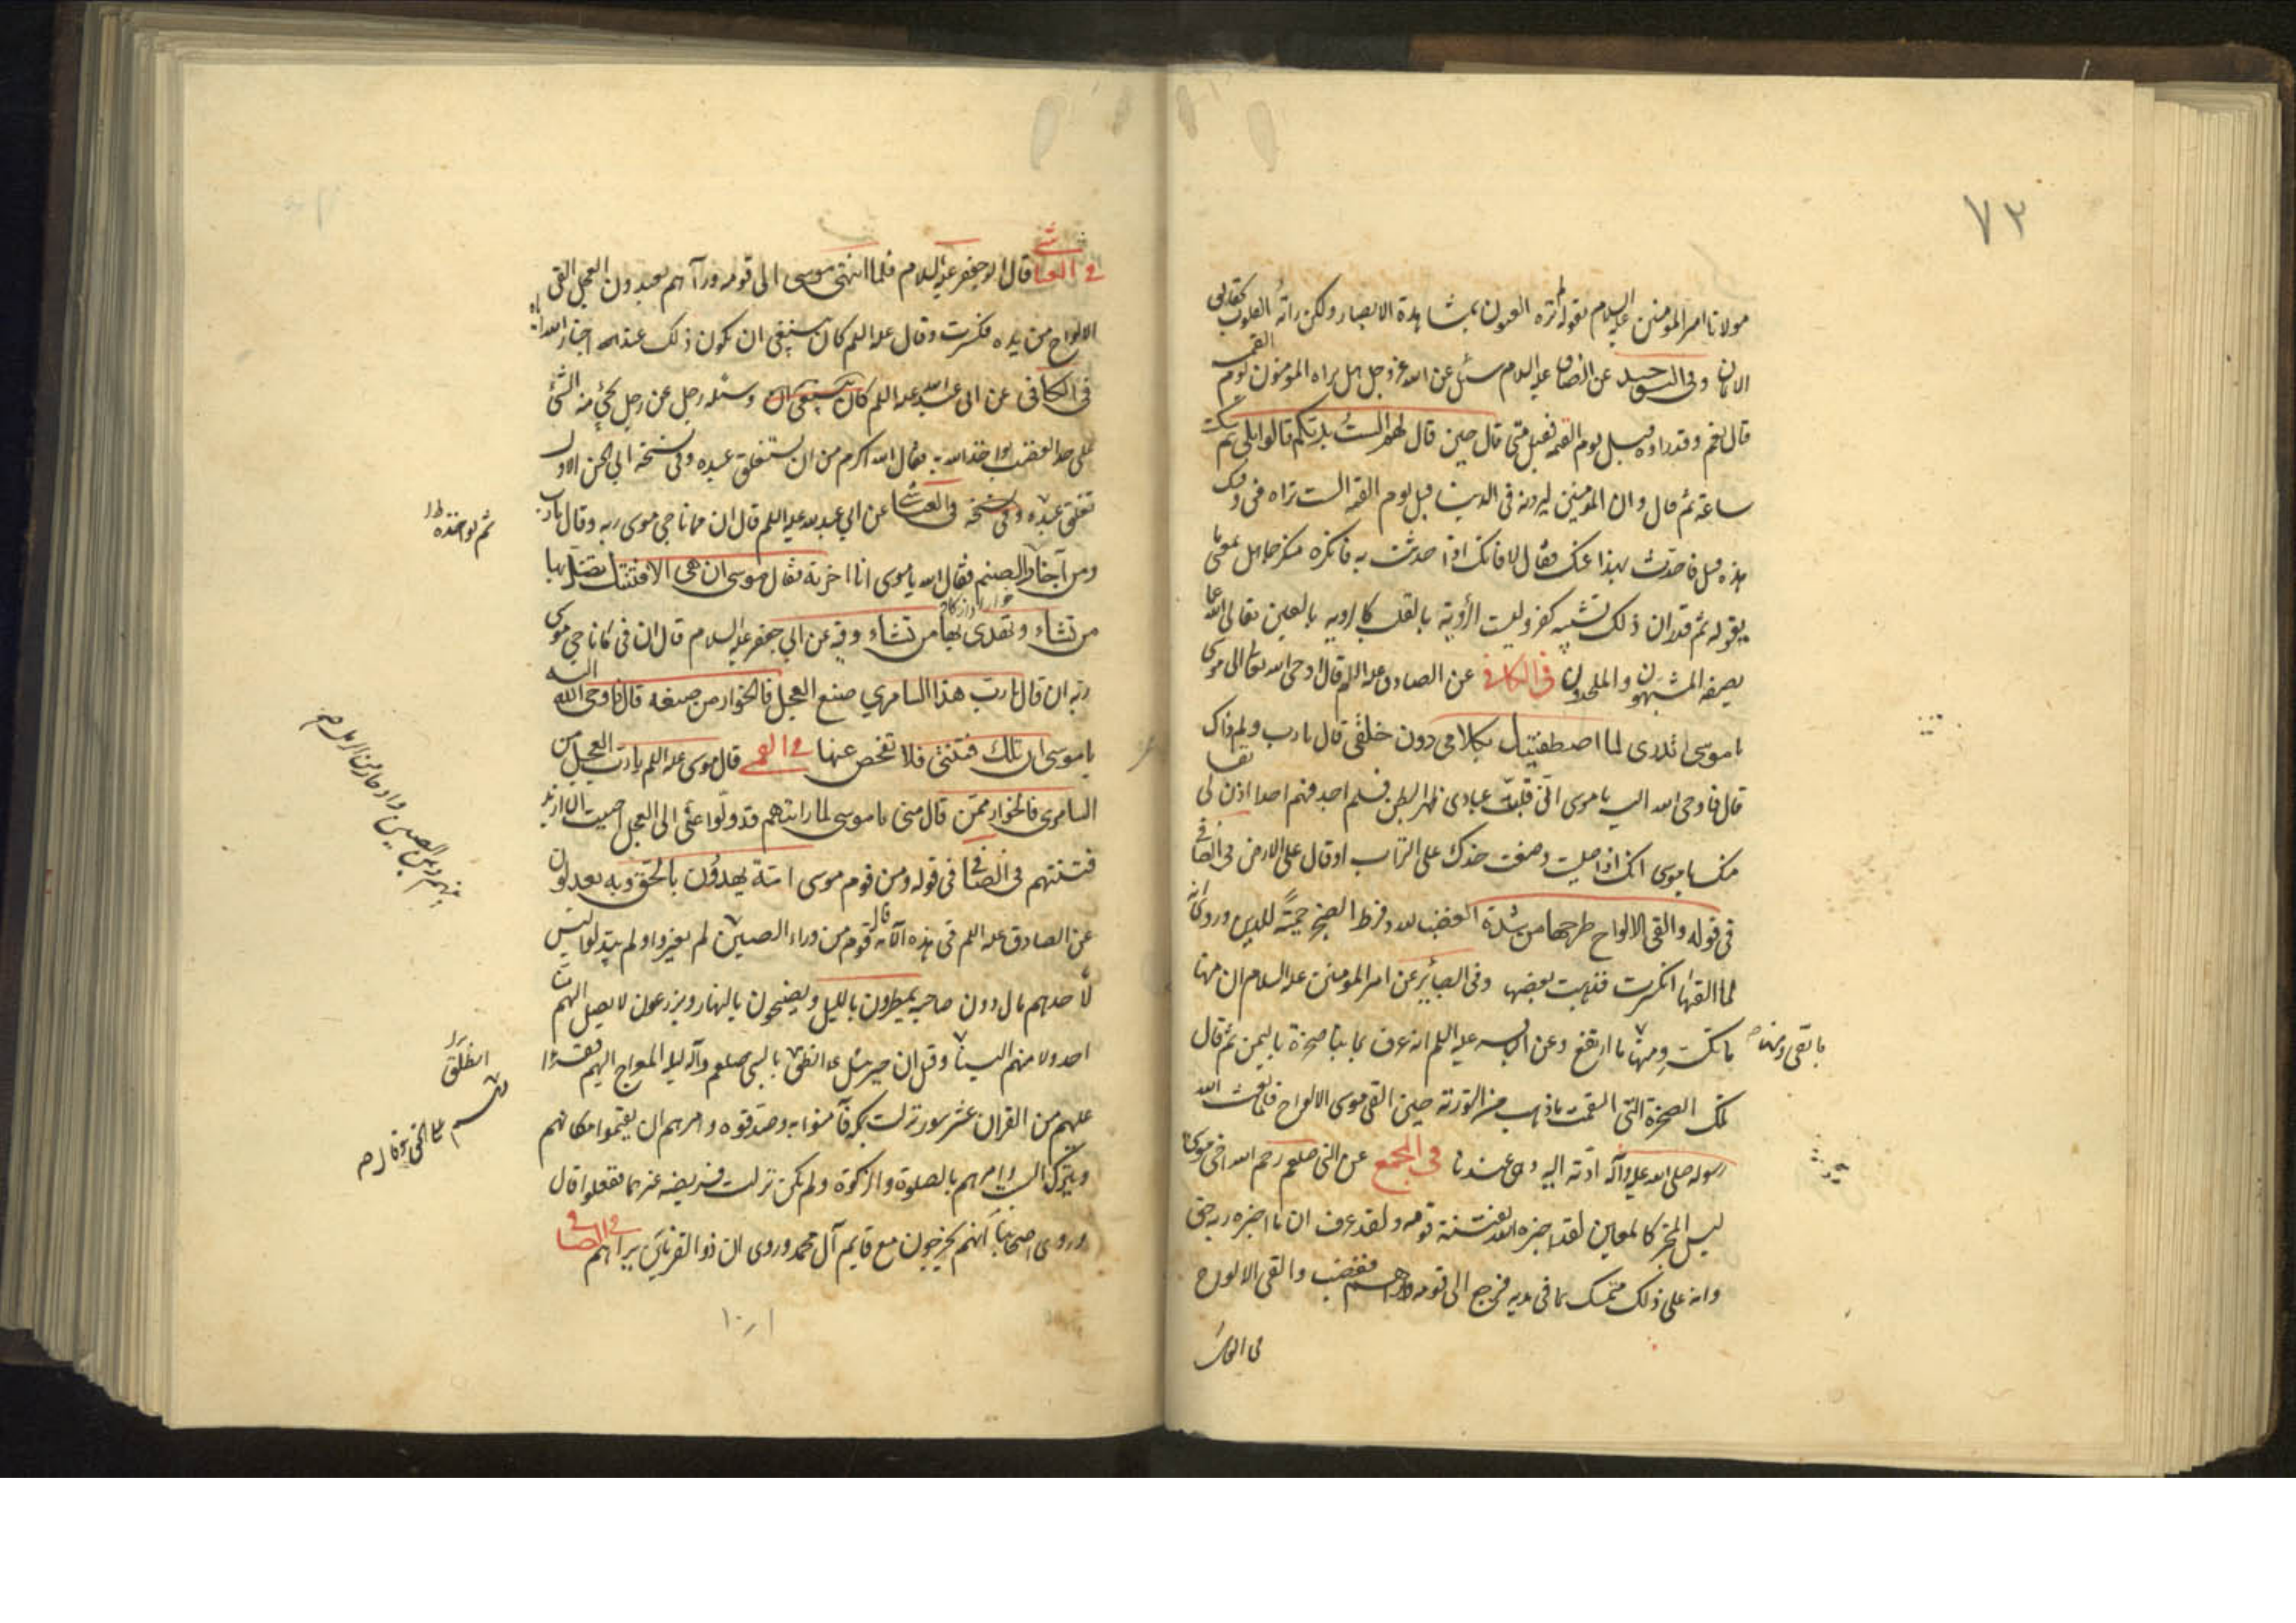 ٧٣
مولانا امير المؤمنين عليه السلام بقوله لم تره العيون بمشاهدة الابصار ولكن راته القلوب بحقايق
الايمان وفى التوحيد عن الصادق عليه السلام سئل عن الله عز وجل هل يراه المؤمنون يوم القيمة
قال نعم وقد راوه قبل يوم القيمة فقيل متى قال حين قال لهم الست بربكم قالوا بلى ثم سكت
ساعة ثم قال وان المؤمنين ليرونه فى الدنيا قبل يوم القيمة الست تراه فى وقتك
هذا قيل فاحدث بهذا عنك فقال لا فانك اذا حدثت به فانكره منكر جاهل بمعنى ما
يقوله ثم قدر ان ذلك تشبيه كفر وليست الرؤية بالقلب كالروية بالعين تعالى الله عما
يصفه المشبهون والملحدون فى الكافى عن الصادق عليه السلم قال اوحى الله تعالى الى موسى
يا موسى اتدرى لما اصطفيتك بكلامى دون خلقى قال يا رب ولم ذاك
قال فاوحى الله اليه يا موسى انى قلبت عبادى ظهر البطن فلم اجد فيهم احدا اذل لى نفسا
منك يا موسى انك اذا صليت وضعت خدك على التراب او قال على الارض فى الصافى
فى قوله والقى الالواح طرحها من شدة الغضب لله وفرط الضجر حمية للدين وروى انه
لما القيها انكسرت فذهب بعضها وفى البصاير عن امير المؤمنين عليه السلام ان منها
ما تكسر ومنها ما ارتفع وعن الباقر عليه السلم انه عرف يمانيا صخرة باليمن ثم قال
ما بقى ومنها
تلك الصخرة التى التقمت ما ذهب من التورية حين القى موسى الالواح فلما بعث الله
رسوله صلى الله عليه وآله ادته اليه وهى عندنا فى المجمع عن النبى صلعم رحم الله اخى موسى
ليس المخبر كالمعاين لقد اخبره الله بفتنة قومه ولقد عرف ان ما اخبره ربه حق
وانه على ذلك متمسك بما فى يديه فرجع الى قومه وراهم فغضب والقى الالواح
فى العياشى
فى العياشى قال ابو جعفر عليه السلام فلما انتهى موسى الى قومه ورآهم يعبدون العجل القى
الالواح من يده فكسرت وقال عليه السلم كان ينبغى ان يكون ذلك عند اخبار الله اياه
فى الكافى عن ابى عبد الله عليه السلم كان ينبغى ان وسئله رجل عن رجل يجئ منه الشئ
على حد الغضب يواخذه الله به فقال الله اكرم من ان يستغلق عبده وفى نسخة ابى الحسن الاول
ثم يواخذه
عبده وفى نسخة فى العياشى عن ابى عبد الله عليه السلم قال ان فيما ناجى موسى ربه وقال يا رب
ومن آخار الصنم فقال الله يا موسى انا اخرته فقال موسى ان هى الا فتنتك تضل بها
من تشاء وتهدى بها من تشاء وفيه عن ابى جعفر عليه السلام قال ان فى ما ناجى موسى
ربه ان قال يا رب هذا السامرى صنع العجل فالخوار من صنعه قال فاوحى الله اليه
يا موسى ان تلك فتنتى فلا تفحص عنها فى القمى قال موسى عليه السلم يا رب العجل من
السامرى فالخوار ممن قال منى يا موسى لما رايتهم قد ولوا عنى الى العجل احببت ان ازيد
فتنتهم فى الصافى فى قوله ومن قوم موسى امة يهدون بالحق وبه يعدلون
عن الصادق عليه السلم فى هذه الآية قال قوم من وراء الصين لم يغيروا ولم يبدلوا ليس
لاحدهم مال دون صاحبه يمطرون بالليل ويضحون بالنهار ويزرعون لا يصل اليهم منا
احد ولا منهم الينا وقيل ان جبرئيل انطلق بالنبى صلعم وآله ليلة المعراج اليهم فقرا
انطلق
عليهم من القران عشر سور نزلت بمكة فآمنوا به وصدقوه وامرهم ان يقيموا مكانهم
ويتركوا السبت وامرهم بالصلوة والزكوة ولم يكن نزلت فريضة غيرهما ففعلوا قال
وروى اصحابنا انهم يخرجون مع قايم آل محمد وروى ان ذو القرنين راهم فى الصافى